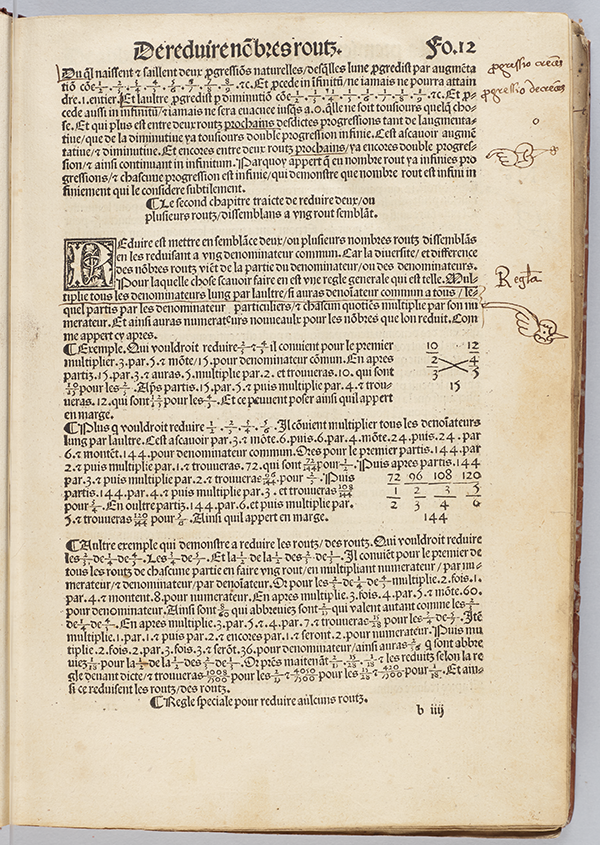 De reduire nõbres routz. Fo.12
Du q̃l naissent ⁊ saillent deux ꝓgressiõs naturelles/desq̃lles lune ꝓgredist par augmẽta
tiõ cõe 1/2. 2/3. 3/4. 4/5. 5/6. 6/7. 7/8. 8/9. ⁊c. Et ꝓcede in ĩfinitũ/ne iamais ne pourra attain
dre.1.entier. Et laultre ꝓgredist ꝑ diminutiõ cõe 1/2. 1/3. 1/4. 1/5. 1/6. 1/7. 1/8. 1/9. ⁊c. Et ꝓ-
cede aussi in infinitũ/⁊ iamais ne sera euacuee iusq̃s a.0.q̃lle ne soit tousiours quelq̃ cho-
se. Et qui plus est entre deux routz prochains desdictes progressions tant de laugmenta-
tiue/que de la diminutiue ya tousiours double progression infinie. Cest ascauoir augmẽ
tatiue/⁊ diminutiue. Et encores entre deux routz prochains/ya encores double progres-
sion/⁊ ainsi continuant in infinitum. Parquoy appert q̃ en nombre rout ya infinies pro
gressions/⁊ chascune progression est infinie/qui demonstre que nombre rout est infini in
finiement qui le considere subtilement.
¶Le second chapitre traicte de reduire deux/ou
plusieurs routz/dissemblans a vng rout semblãt.
REduire est mettre en semblãce deux/ou plusieurs nombres routz dissemblãs
en les reduisant a vng denominateur commun. Car la diuersite/et difference
des nõbres routz viẽt de la partie du denominateur/ou des denominateurs.
Pour laquelle chose scauoir faire en est vne regle generale qui est telle. Mul-
tiplie tous les denominateurs lung par laultre/si auras denoĩateur commun a tous/le-
quel partis par les denominateur particuliers/⁊ chascun quotiẽs multiplie par son nu
merateur. Et ainsi auras numerateurs nouueaulx pour les nõbres que lon reduit. Com
me appert cy apres.
¶Exemple. Qui vouldroit reduire 2/3 ⁊ 4/5 il conuient pour le premier
multiplier.3.par.5.⁊ mõte/15.pour denominateur cõmun. En apres
partiz.15.par.3.⁊ auras.5.multiplie par.2.et trouueras.10.qui sont
10/15 pour les 2/3. Ap̃s partis.15.par.5.⁊ puis multiplie par.4.⁊ trou-
ueras.12.qui sont 12/15 pour les 4/5. Et ce peuuent poser ainsi quil appert
en marge.
10 12
2 4
3 5
15
¶Plus q̃ vouldroit reduire 1/2. 2/3. 3/4. 5/6. Il cõuient multiplier tous les denoĩateurs
lung par laultre. Cest a scauoir par.3.⁊ mõte.6.puis.6.par.4.mõte.24.puis.24.par
6.⁊ montẽt.144.pour denominateur commun. Ores pour le premier partis.144.par
2.⁊ puis multiplie par 1.⁊ trouueras.72.qui sont 72/144 pour 1/2. Puis apres partis.144
par.3.⁊ puis multiplie par 2.⁊ trouueras 96/144 pour 2/3. Puis
partis.144.par.4.⁊ puis multiplie par 3.et trouueras 108/144
pour 3/4. En oultre partiz.144.par.6.et puis multiplie par.
5.⁊ trouueras 120/144 pour 5/6. Ainsi quil appert en marge.
72 96 108 120
1 2 3 5
2 3 4 6
144
¶Aultre exemple qui demonstre a reduire les routz/des routz. Qui vouldroit reduire
tous les routz de chascune partie en faire vng rout/en multipliant numerateur/par nu-
merateur/⁊ denominateur/par denoĩateur.
par.4.⁊ montent.8.pour numerateur. En apres multiplie.3.fois.4.par.5.⁊ mõte.60.
pour denominateur. Ainsi sont 8/60 qui abbreuiez sont 2/15 qui valent autant comme les
multiplie.1.par.1.⁊ puis par.2.⁊ encores par.1.seront.2.pour numerateur. Puis mu
tiplie.2.fois.2.par.3.⁊ encores.3.⁊ serõt.36.pour denominateur/ainsi auras 2/36 q̃ sont abbre
gle deuant dicte/⁊ trouueras
si ce reduisent les routz/des routz.
¶Regle speciale pour reduire aulcuns routz.
b iiij
ꝓgressio crecẽs
ꝓgressio decrecẽs
0
Regla